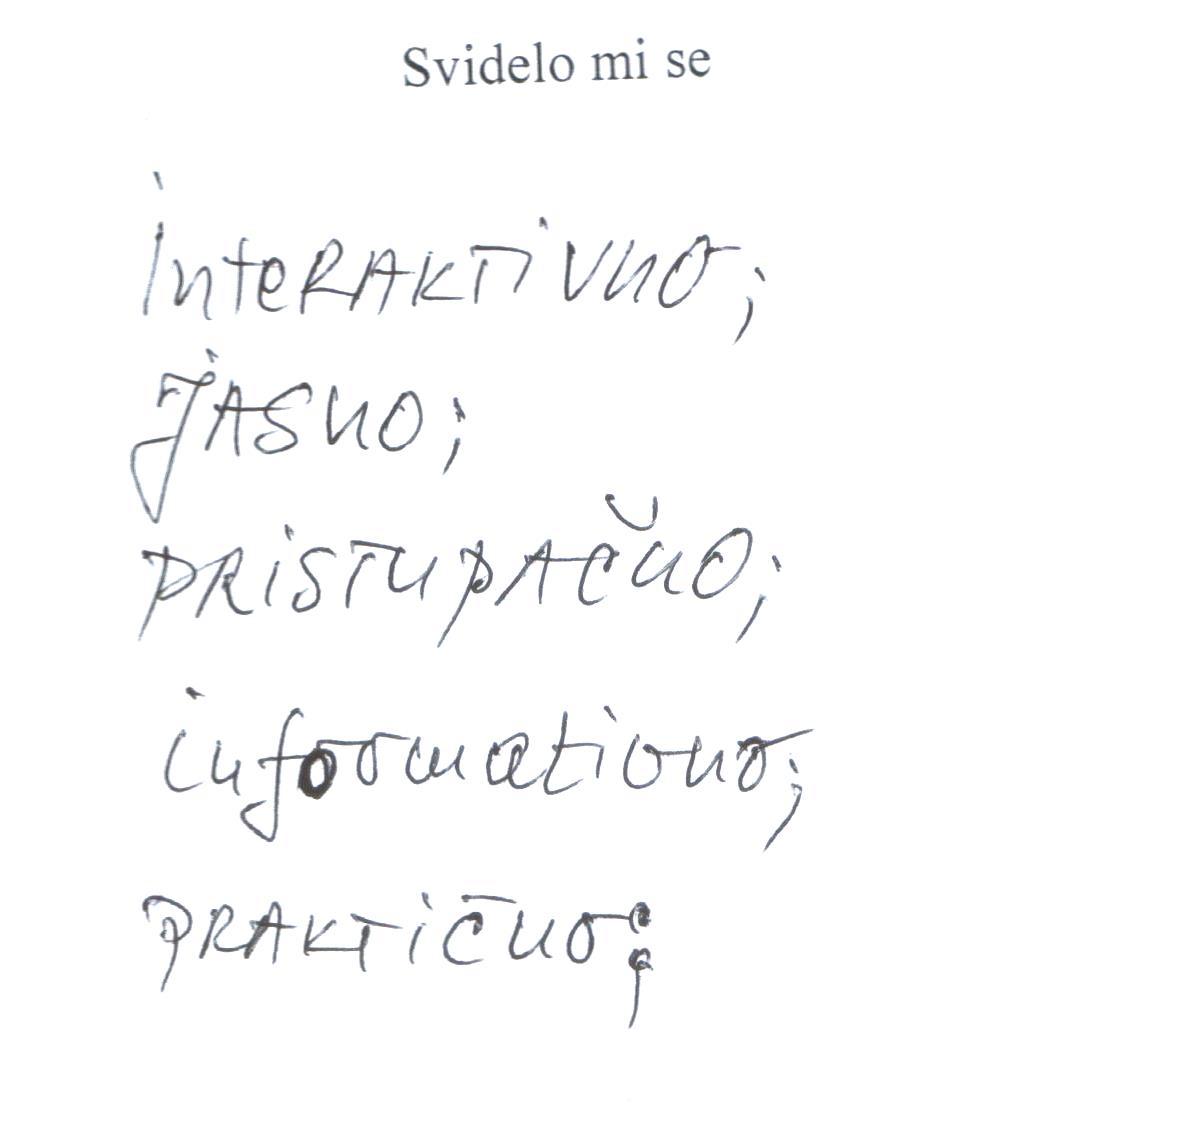 Svidelo mi se
InteRAKTiVNO;
JASNO;
PRiSTUPAČNO;
informativno;
PRAKTIČNO;